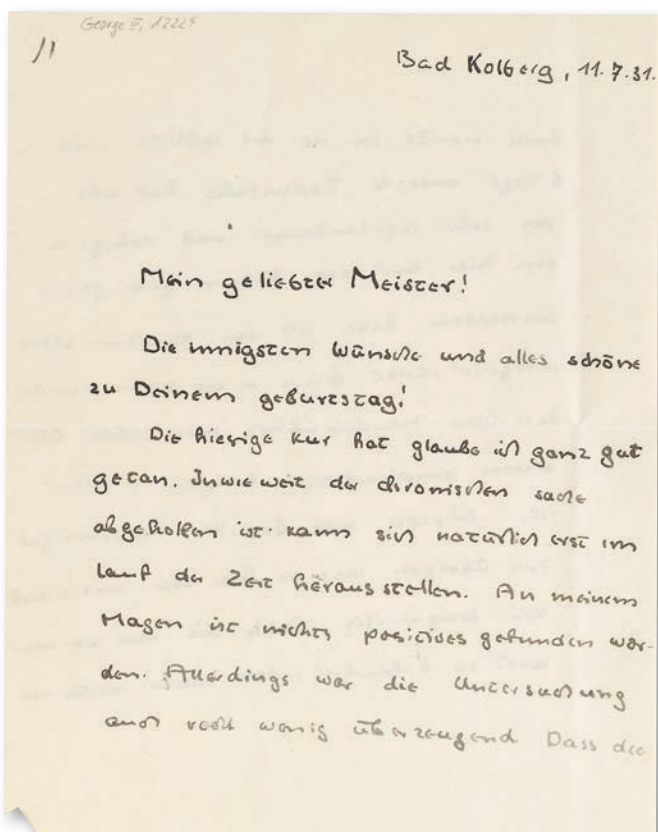 George III, 12224
Bad Kolberg, 11.7.31.
Mein geliebter Meister!
Die innigsten wünsche und alles schöne
zu Deinem geburtstag!
Die hiesige kur hat glaube ich ganz gut
getan. Inwieweit der chronischen sache
abgeholfen ist kann sich natürlich erst im
lauf der Zeit herausstellen. An meinem
Magen ist nichts positives gefunden wor-
den. Allerdings war die Untersuchung
auch recht wenig überzeugend Dass die